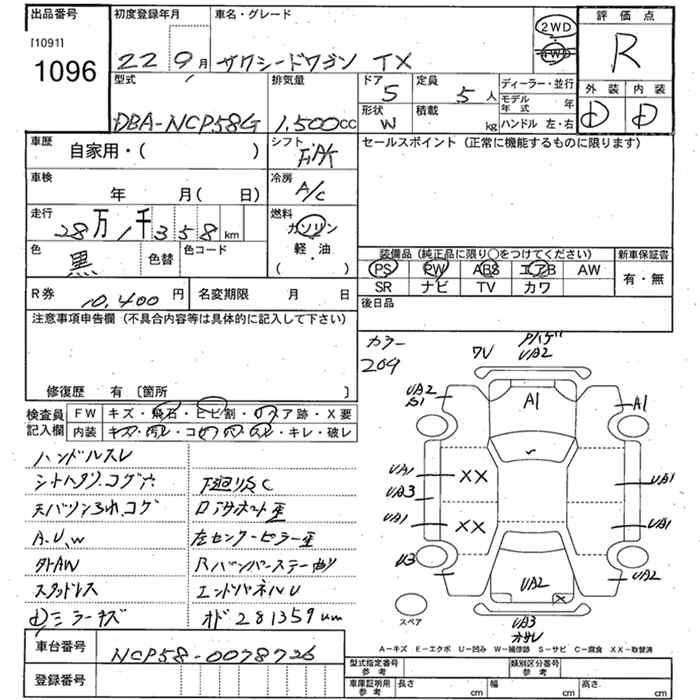 出品番号 初度登録年月 車名・グレード 評価点
[1091]
1096 22 9月 サクシードワゴン TX 2WD 4WD R
型式 排気量 ドア 定員 ディーラー・並行 外装 内装
5 5人 モデル年式 年
DBA-NCP58G 1,500cc 形状 W 積載 kg ハンドル 左・右 D D
車歴 自家用・( ) シフト FAT セールスポイント(正常に機能するものに限ります)
車検 年 月( 日) 冷房 A/C
走行 28万1千358km 燃料 ガソリン
色 黒 色替 色コード 軽・油 ( )
装備品(純正品に限り〇をつけてください) 新車保証書
PS PW ABS エアB AW 有・無
SR ナビ TV カワ
R券 10,400円 名変期限 月 日 後日品
注意事項申告欄(不具合内容等は具体的に記入して下さい)
修復歴 有〔箇所 〕
カラー
209
7V UA2
UA2 A1 A1
UA1 XX UA1
UA3
UA1 XX UA1
U3 UA2 UA2
X
スペア UA3
検査員 FW キズ・飛石・ヒビ割・リペア跡・X要
記入欄 内装 キズ・汚レ・コゲ・穴・スレ・キレ・破レ
ハンドルスレ
シートヘタリ、コゲ穴 下廻リ灸C
天バリ コゲ
A、U、W 左センターピラー歪
外AW Rバンパーステー曲リ
スタッドレス エンドパネルU
ミラーキズ オド281359km
A-キズ E-エクボ U-凹み W-補修跡 S-サビ C-腐食 XX-取替済
車台番号 NCP58-0078726
登録番号
型式指定番号 参考 類別区分番号 参考
車庫証明用 参考 長さ cm 幅 cm 高さ cm